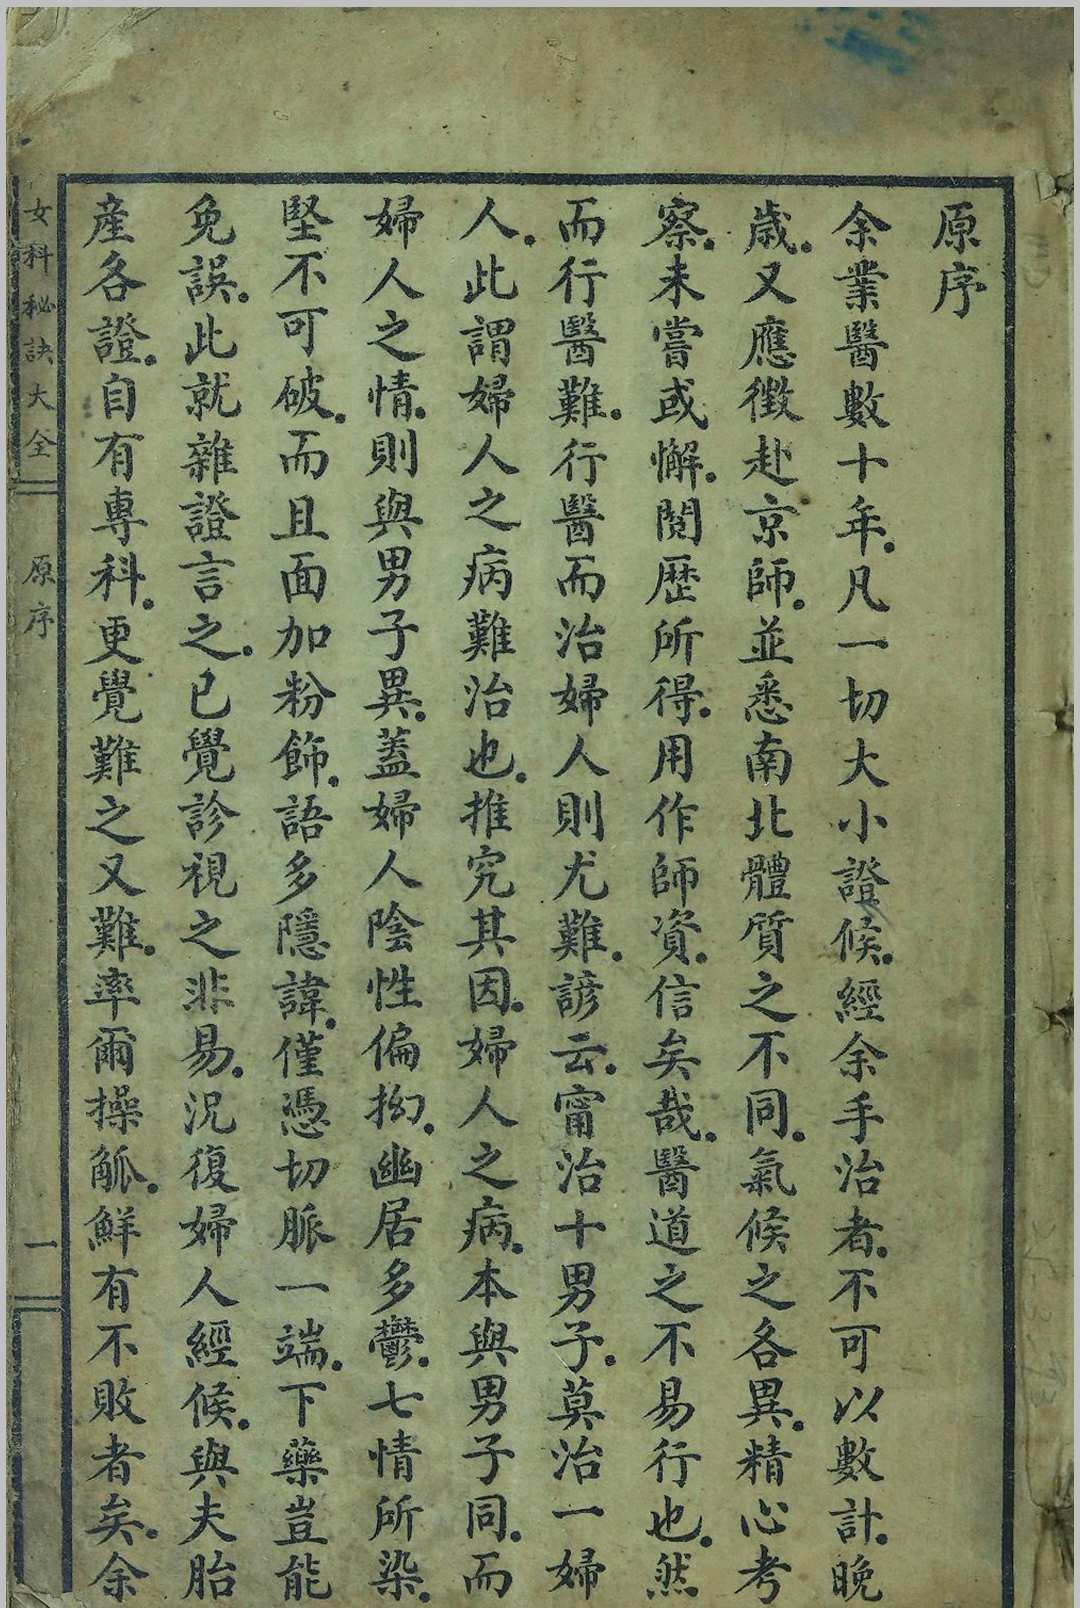 原序
余業醫數十年。凡一切大小證候。經余手治者。不可以數計。晚
歲。又應徵赴京師。並悉南北體質之不同。氣候之各異。精心考
察。未嘗或懈。閱歷所得。用作師資。信矣哉。醫道之不易行也。然
而行醫難。行醫而治婦人則尤難。諺云。甯治十男子。莫治一婦
人。此謂婦人之病難治也。推究其因。婦人之病。本與男子同。而
婦人之情。則與男子異。蓋婦人陰性偏拗。幽居多鬱。七情所染。
堅不可破。而且面加粉飾。語多隱諱。僅憑切脈一端。下藥豈能
免誤。此就雜證言之。已覺診視之非易。況復婦人經候。與夫胎
產各證。自有專科。更覺難之又難。率爾操觚。鮮有不敗者矣。余
女科秘訣大全 原序 一